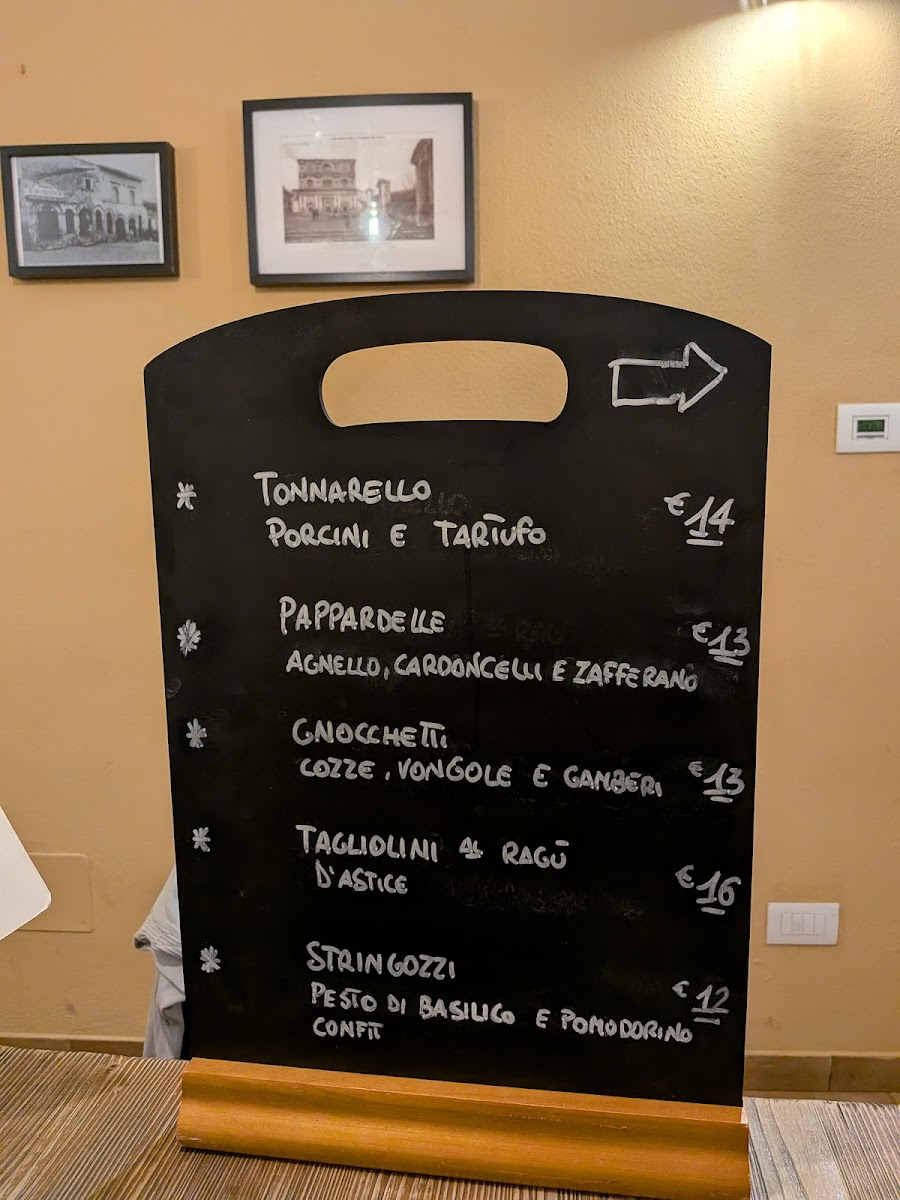 * TONNARELLO
PORCINI E TARTUFO € 14
* PAPPARDELLE € 13
AGNELLO, CARDONCELLI E ZAFFERANO
* GNOCCHETTI
COZZE, VONGOLE E GAMBERI € 13
* TAGLIOLINI AL RAGÙ
D'ASTICE € 16
* STRINGOZZI
PESTO DI BASILICO E POMODORINO € 12
CONFIT